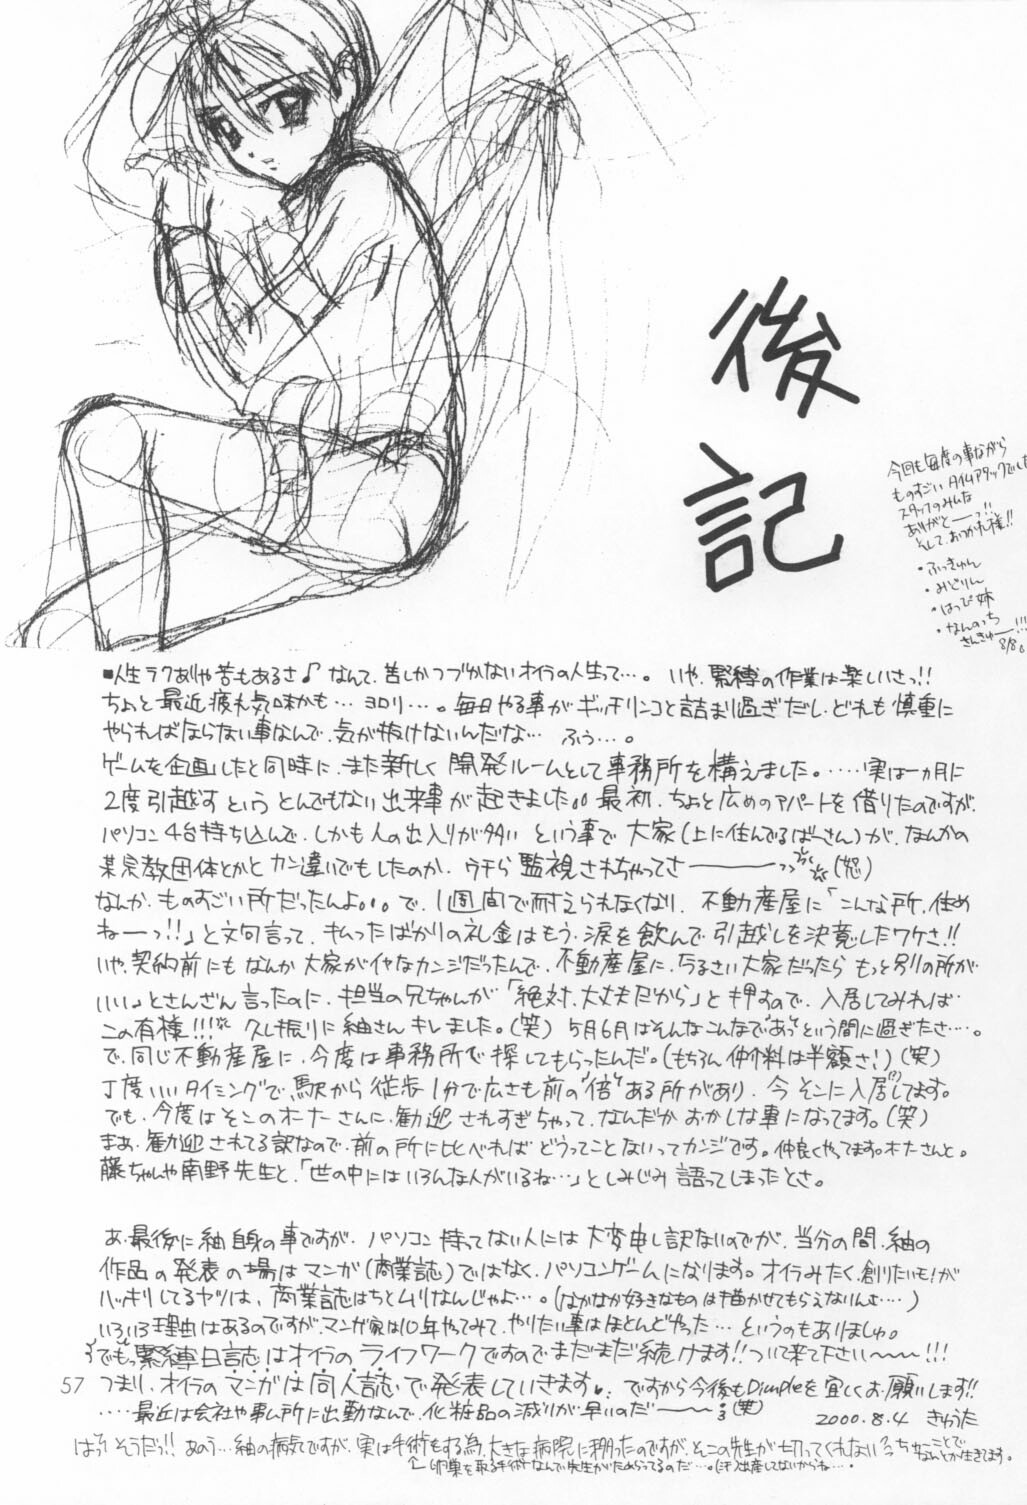 後記
今回も毎度の事ながら
ものすごい タイムアタックでした
スタッフのみんな
ありがとーーっ!!
そして、おつかれ様!!
・ふっきゅん
・みどりん
・はっぴ姉
・なんのっち
さんきゅー!!!
■人生ラクありゃ苦もあるさ♪ なんて、苦しかつづかないオイラの人生って…。いや、緊縛の作業は楽しいさっ!!
ちょっと最近疲れ気味かも… ヨロリ…。毎日やる事がギッチリンコと詰まり過ぎだし、どれも慎重に
やらればならない事なんで、気が抜けないんだな… ふぅ…。
ゲームを企画したと同時に、また新しく開発ルームとして事務所を構えました。……実は一ヵ月に
2度引越すというとんでもない出来事が起きました。。最初、ちょっと広めのアパートを借りたのですが、
パソコン4台持ち込んで、しかも人の出入りが多いという事で大家(上に住んでるばーさん)が、なんかの
某宗教団体とかとカン違いでもしたのか、ウチら監視されちゃってさーーーーっっ(怒)
なんか、ものすごい所だったんよ。。。で、1週間で耐えられなくなり、不動産屋に「こんな所、住め
ねーっ!!」と文句言って、払ったばかりの礼金はもう、涙を飲んで引越しを決意したワケさ!!
いや、契約前にもなんか大家がイヤなカンジだったんで、不動産屋に、うるさい大家だったらもっと別の所が
いい。とさんざん言ったのに、担当の兄ちゃんが「絶対、大丈夫だから」と押すので、入居してみれば
この有様!!! 久し振りに紬さんキレました。(笑) 5月6月はそんなこんなであっという間に過ぎたさ…。
で、同じ不動産屋に、今度は事務所で探してもらったんだ。(もちろん仲介料は半額さ!)(笑)
丁度いいタイミングで、駅から徒歩1分で広さも前の"倍"ある所があり、今そこに入居(?)してます。
でも、今度はそこのオーナーさんに、歓迎されすぎちゃって、なんだかおかしな事になってます。(笑)
まぁ、歓迎されてる訳なので、前の所に比べればどうってことないってカンジです。仲良くやってます。オーナーさんと。
藤ちゃんや南野先生と、「世の中にはいろんな人がいるね…」としみじみ語ってしまったとさ。
あ、最後に紬自身の事ですが、パソコン持ってない人には大変申し訳ないのですが、当分の間、紬の
作品の発表の場はマンガ(商業誌)ではなく、パソコンゲームになります。オイラみたく、創りたいも!が
ハッキリしてるヤツは、商業誌はちとムリなんじゃよ…。(なかなか好きなものは描かせてもらえないんよ……)
いろいろ理由はあるのですが、マンガ家は10年やってみて、やりたい事はほとんどやった… というのもありましゅ。
でもっ緊縛日誌はオイラのライフワークですのでまだまだ続けます!! ついて来て下さい〜〜〜!!!
つまり、オイラのマンガは同人誌で発表していきます♥ ですから今後もDimpleを宜しくお願いします!!
……最近は会社や事ム所に出勤なんで、化粧品の減りが早いのだ〜〜〜(笑)
2000.8.4 きゅうた
はっ! そうだっ!! あのう…紬の病気ですが、実は手術をする為、大きな病院に行ったのですが、そこの先生が切ってくれないっちゅーことで
なんとか生きてます。
卵巣を取る手術なんで先生がためらってるのだ…。出産してないからね…。
57